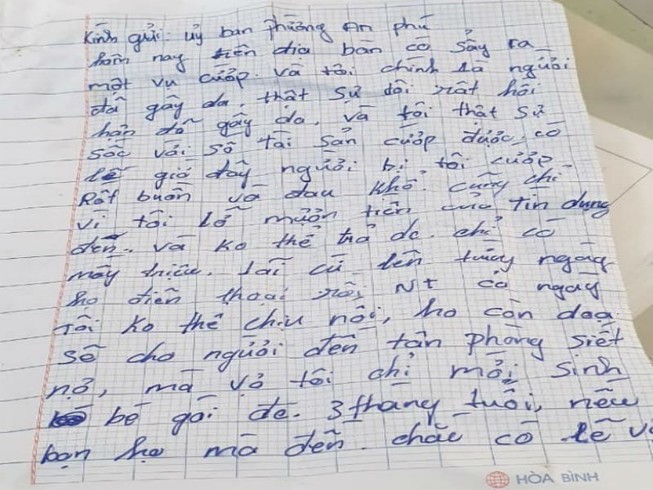 Kính gửi: uỷ ban phường An phú
hôm nay trên địa bàn có sẩy ra
một vụ cướp. và tôi chính là người
đã gây da, thật sự tôi rất hối
hận đã gây da, và tôi thật sự
sốc với số tài sản cướp được, có
lẽ giờ đây người bị tôi cướp
Rất buồn và đau khổ. cũng chỉ
vì tôi lỡ mượn tiền của Tín dụng
đen. và ko thể trả dc. chỉ có
mấy triệu. lãi cứ lên từng ngày
họ điện thoại rồi NT cả ngày
tôi ko thể chịu nổi, họ còn doạ
sẽ cho người đến tận phòng siết
nợ, mà vợ tôi chỉ mới sinh
bé gái đc. 3 tháng tuổi, nếu
bọn họ mà đến. chắc có lẽ v
HÒA BÌNH